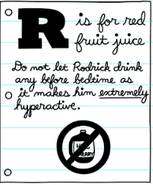 R is for red
fruit juice
Do not let Rodrick drink
any before bedtime as
it makes him extremely
hyperactive.